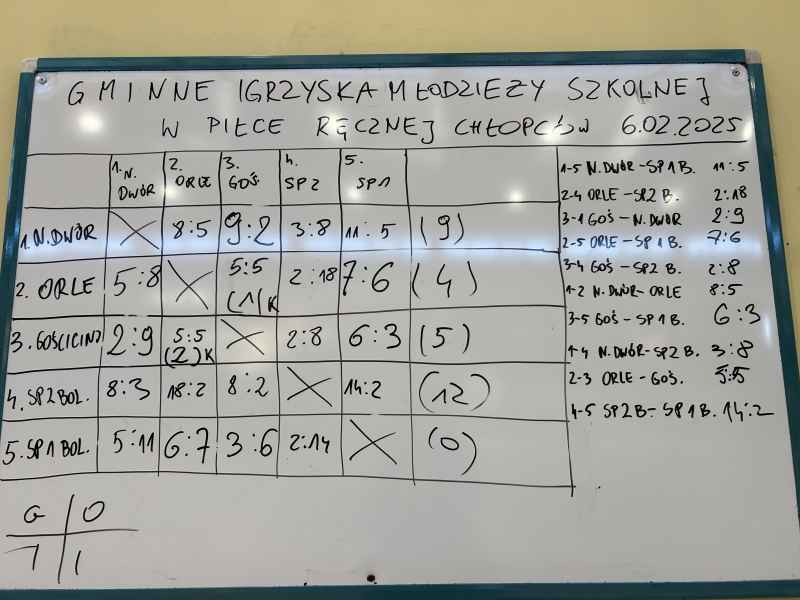 GMINNE IGRZYSKA MŁODZIEŻY SZKOLNEJ
W PIŁCE RĘCZNEJ CHŁOPCÓW 6.02.2025
1. N. DWÓR 2. ORLE 3. GOŚ 4. SP2 5. SP1
1. N. DWÓR X 8:5 9:2 3:8 11:5 (9)
2. ORLE 5:8 X 5:5 (1)K 2:18 7:6 (4)
3. GOŚCICINO 2:9 5:5 (2)K X 2:8 6:3 (5)
4. SP2 BOL. 8:3 18:2 8:2 X 14:2 (12)
5. SP1 BOL. 5:11 6:7 3:6 2:14 X (0)
1-5 N. DWÓR - SP1 B. 11:5
2-4 ORLE - SP2 B. 2:18
3-1 GOŚ - N. DWÓR 2:9
2-5 ORLE - SP1 B. 7:6
3-4 GOŚ - SP2 B. 2:8
1-2 N. DWÓR - ORLE 8:5
3-5 GOŚ - SP1 B. 6:3
1-4 N. DWÓR - SP2 B. 3:8
2-3 ORLE - GOŚ. 5:5
4-5 SP2 B - SP1 B. 14:2
G O
1 1